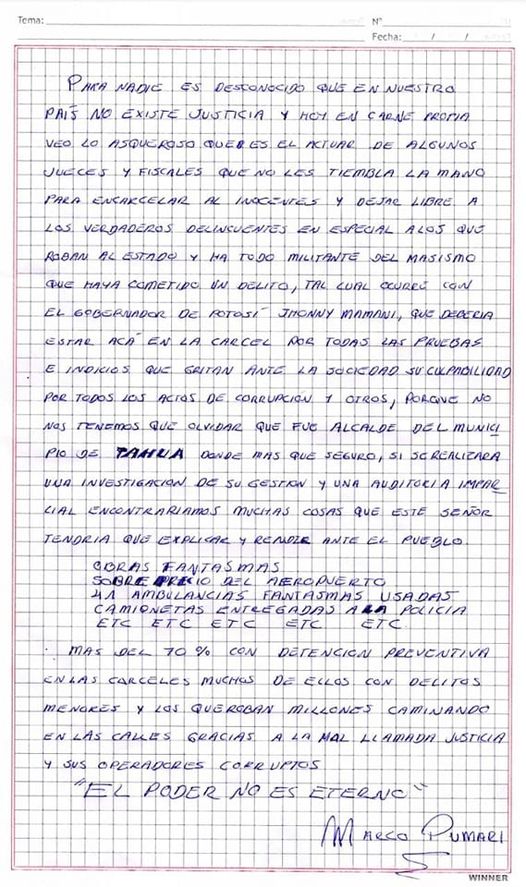 Tema: Nº
Fecha: / /
PARA NADIE ES DESCONOCIDO QUE EN NUESTRO
PAÍS NO EXISTE JUSTICIA Y HOY EN CARNE PROPIA
VEO LO ASQUEROSO QUE ES EL ACTUAR DE ALGUNOS
JUECES Y FISCALES QUE NO LES TIEMBLA LA MANO
PARA ENCARCELAR AL INOCENTES Y DEJAR LIBRE A
LOS VERDADEROS DELINCUENTES EN ESPECIAL A LOS QUE
ROBAN AL ESTADO Y HA TODO MILITANTE DEL MASISMO
QUE HAYA COMETIDO UN DELITO, TAL CUAL OCURRE CON
EL GOBERNADOR DE POTOSÍ JHONNY MAMANI, QUE DEBERIA
ESTAR ACÁ EN LA CARCEL POR TODAS LAS PRUEBAS
E INDICIOS QUE GRITAN ANTE LA SOCIEDAD SU CULPABILIDAD
POR TODOS LOS ACTOS DE CORRUPCIÓN Y OTROS, PORQUE NO
NOS TENEMOS QUE OLVIDAR QUE FUE ALCALDE DEL MUNICI
PIO DE TAHUA DONDE MAS QUE SEGURO, SI SE REALIZARA
UNA INVESTIGACION DE SU GESTION Y UNA AUDITORIA IMPAR
CIAL ENCONTRARIAMOS MUCHAS COSAS QUE ESTE SEÑOR
TENDRIA QUE EXPLICAR Y RENDIR ANTE EL PUEBLO.
OBRAS FANTASMAS
SOBRE PRECIO DEL AEROPUERTO
41 AMBULANCIAS FANTASMAS USADAS
CAMIONETAS ENTREGADAS A LA POLICIA
ETC ETC ETC ETC ETC
MAS DEL 70% CON DETENCION PREVENTIVA
EN LAS CARCELES MUCHOS DE ELLOS CON DELITOS
MENORES Y LOS QUE ROBAN MILLONES CAMINANDO
EN LAS CALLES GRACIAS A LA MAL LLAMADA JUSTICIA
Y SUS OPERADORES CORRUPTOS
"EL PODER NO ES ETERNO"
MARCO PUMARI
WINNER